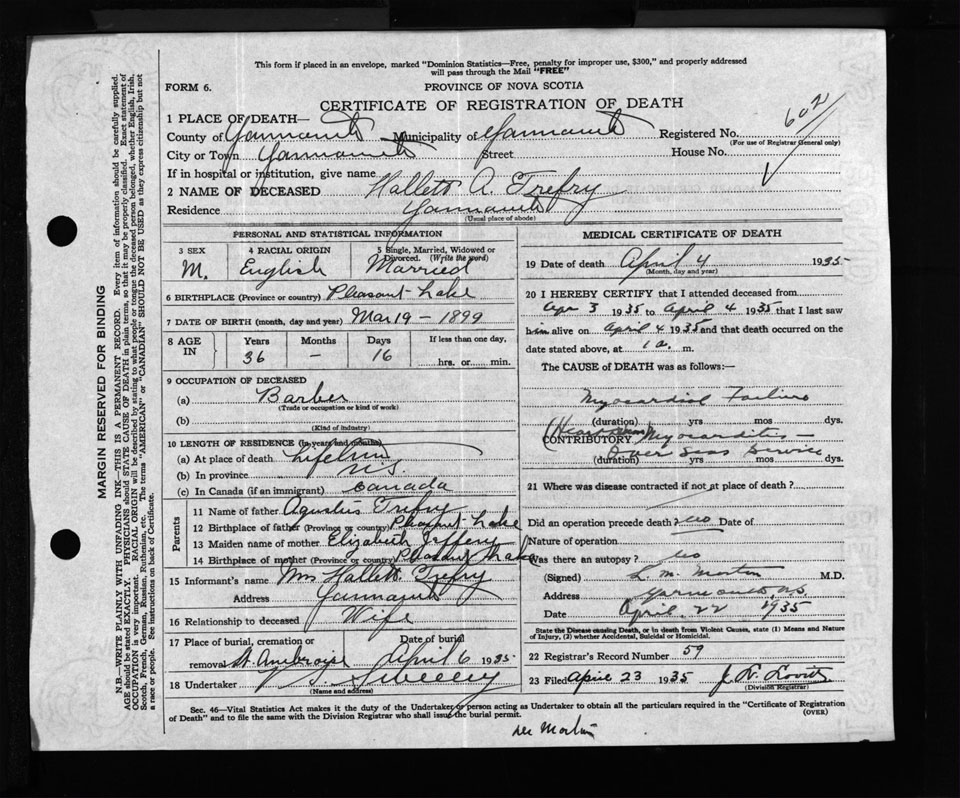 This form if placed in an envelope, marked "Dominion Statistics—Free, penalty for improper use, $300," and properly addressed
will pass through the Mail "FREE"
FORM 6.
PROVINCE OF NOVA SCOTIA
CERTIFICATE OF REGISTRATION OF DEATH
602
1 PLACE OF DEATH—
County of Yarmouth Municipality of Yarmouth Registered No.
(For use of Registrar General only)
City or Town Yarmouth Street House No.
If in hospital or institution, give name
2 NAME OF DECEASED Hallett A. Trefry
Residence Yarmouth
(Usual place of abode)
PERSONAL AND STATISTICAL INFORMATION
3 SEX 4 RACIAL ORIGIN 5 Single, Married, Widowed or
Divorced. (Write the word)
M. English Married
6 BIRTHPLACE (Province or country) Pleasant Lake
7 DATE OF BIRTH (month, day and year) Mar 19 – 1899
8 AGE IN Years Months Days If less than one day,
36 – 16 hrs. or min.
9 OCCUPATION OF DECEASED
(a) Barber
(Trade or occupation or kind of work)
(b)
(Kind of industry)
10 LENGTH OF RESIDENCE (In years and months)
(a) At place of death Lifetime
(b) In province " N.S.
(c) In Canada (if an immigrant) Canada
Parents
11 Name of father Agustus Trefry
12 Birthplace of father (Province or country) Pleasant Lake
13 Maiden name of mother Elizabeth Jeffery
14 Birthplace of mother (Province or country) Pleasant Lake
15 Informant's name Mrs Hallett Trefry
Address Yarmouth
16 Relationship to deceased Wife
17 Place of burial, cremation or Date of burial
removal St. Ambroise April 6 1935
18 Undertaker V. S. Sweeney
(Name and address)
MEDICAL CERTIFICATE OF DEATH
19 Date of death April 4 1935
(Month, day and year)
20 I HEREBY CERTIFY that I attended deceased from
Apr 3 1935 to April 4 1935 that I last saw
him alive on April 4 1935 and that death occurred on
date stated above, at 1 a. m.
The CAUSE of DEATH was as follows:—
Myocardial Failure
(duration) yrs mos dys.
CONTRIBUTORY Myocarditis –
Over Seas Service
(duration) yrs mos dys.
21 Where was disease contracted if not at place of death?
Did an operation precede death? no Date of
Nature of operation
Was there an autopsy? no
(Signed) L. M. Morton M.D.
Address Yarmouth, NS
Date April 22 1935
State the Disease causing Death, or in death from Violent Causes, state (1) Means and Nature
of Injury, (2) whether Accidental, Suicidal or Homicidal.
22 Registrar's Record Number 59
23 Filed April 23 1935
(Division Registrar)
Sec. 46—Vital Statistics Act makes it the duty of the Undertaker or person acting as Undertaker to obtain all the particulars required in the "Certificate of Registration
of Death" and to file the same with the Division Registrar who shall issue the burial permit.
(OVER)
Morton
MARGIN RESERVED FOR BINDING
N.B.—WRITE PLAINLY WITH UNFADING INK—THIS IS A PERMANENT RECORD. Every item of information should be carefully supplied.
AGE should be stated EXACTLY. PHYSICIANS should STATE CAUSE OF DEATH in plain terms, so that it may be properly classified. Exact statement of
OCCUPATION is very important. RACIAL ORIGIN will be described by stating to what people or tongue the deceased person belonged, whether English, Irish,
Scotch, French, German, Russian, Ruthenian, etc. The terms "AMERICAN" or "CANADIAN" SHOULD NOT BE USED as they express citizenship but not
a race or people. See instructions on back of Certificate.